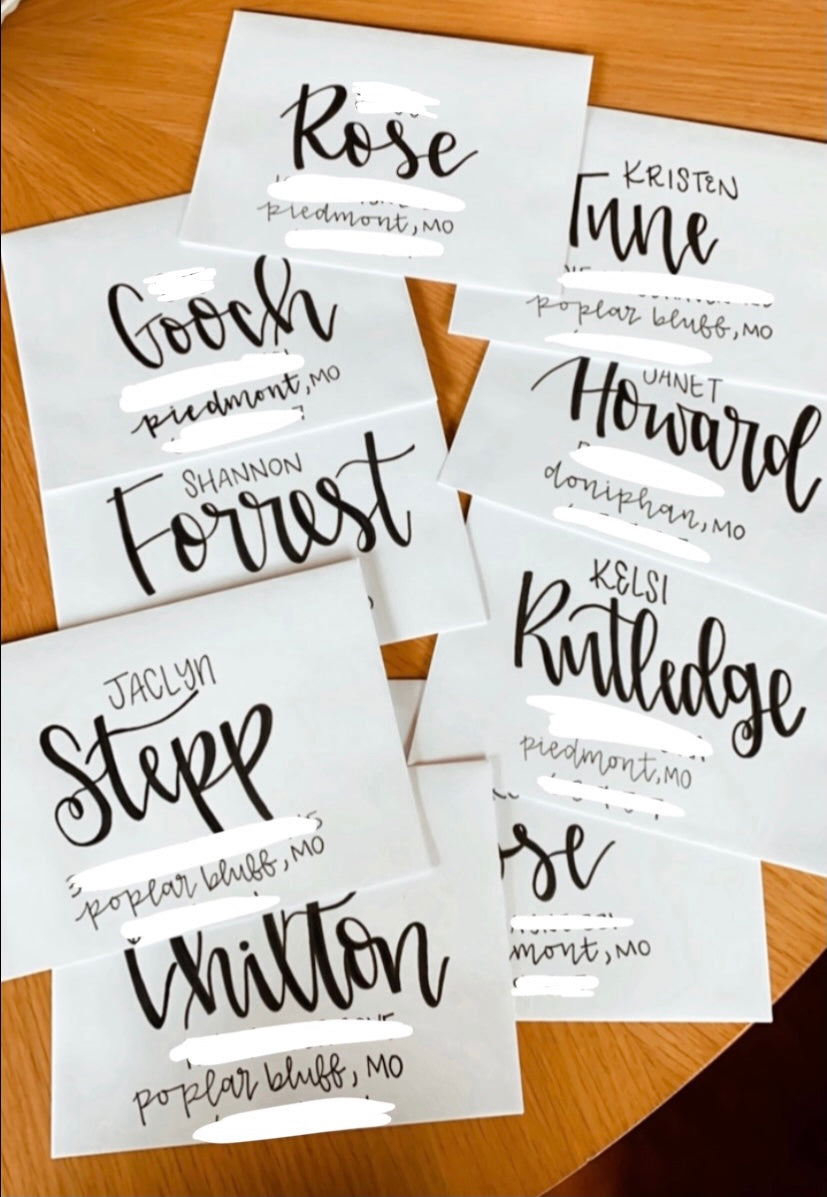 Rose
piedmont, MO
KRISTEN
Tune
poplar bluff, MO
Gooch
piedmont, MO
JANET
Howard
doniphan, MO
SHANNON
Forrest
KELSI
Rutledge
piedmont, MO
JACLYN
Stepp
poplar bluff, MO
ose
mont, MO
Chilton
poplar bluff, MO